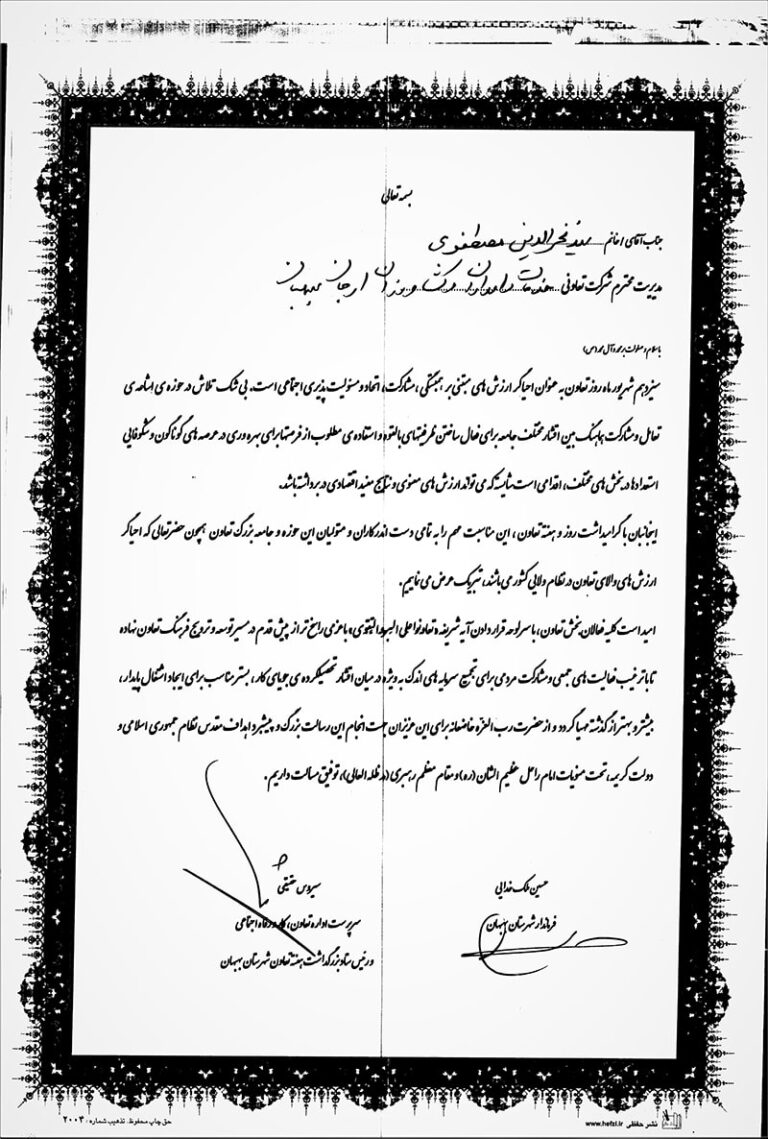 بسمه تعالی
جناب آقای / خانم سید فخرالدین مصطفوی
مدیریت محترم شرکت تعاونی خدمات کشاورزان ارجان بهبهان
با سلام و صلوات بر محمد و آل محمد (ص)
سیزدهم شهریور ماه روز تعاون به عنوان احیاگر ارزش های مبتنی بر، همبستگی، مشارکت، اتحاد و مسئولیت پذیری اجتماعی است. بی شک تلاش در حوزه ی اشاعه ی
تعامل و مشارکت هماهنگ بین اقشار مختلف جامعه برای فعال ساختن ظرفیتهای بالقوه و استفاده ی مطلوب از فرصتها برای بهره وری در عرصه های گوناگون و شکوفایی
استعدادها در بخش های مختلف، اقدامی است شایسته که می تواند ارزش های معنوی و نتایج مفید اقتصادی در بر داشته باشد.
اینجانبان با گرامیداشت روز و هفته تعاون، این مناسبت مهم را به تمامی دست اندرکاران و متولیان این حوزه و جامعه بزرگ تعاون همچون حضرتعالی که احیاگر
ارزش های والای تعاون در نظام ولایی کشور می باشند، تبریک عرض می نماییم.
امید است کلیه فعالان بخش تعاون، با سرلوحه قرار دادن آیه شریفه «تعاونوا علی البر و التقوی» با عزمی راسخ تر از پیش قدم در مسیر توسعه و ترویج فرهنگ تعاون نهاده
تا با ترغیب فعالیت های جمعی و مشارکت مردمی برای تجمیع سرمایه های اندک به ویژه در میان اقشار تحصیلکرده ی جویای کار، بستر مناسب برای ایجاد اشتغال پایدار،
بیشتر و بهتر از گذشته مهیا گردد و از حضرت رب العزه خاضعانه برای این عزیزان جهت انجام این رسالت بزرگ و پیشبرد اهداف مقدس نظام جمهوری اسلامی و
دولت کریمه، تحت منویات امام راحل عظیم الشان (ره) و مقام معظم رهبری (مد ظله العالی)، توفیق مسالت داریم.
حسین ملک خدایی
فرماندار شهرستان بهبهان
سیروس حقیقی
سرپرست اداره تعاون، کار و رفاه اجتماعی
و رئیس ستاد بزرگداشت هفته تعاون شهرستان بهبهان
نشر حافظی www.hefzi.ir
حق چاپ محفوظ. تذهیب شماره: ۲۰۰۳